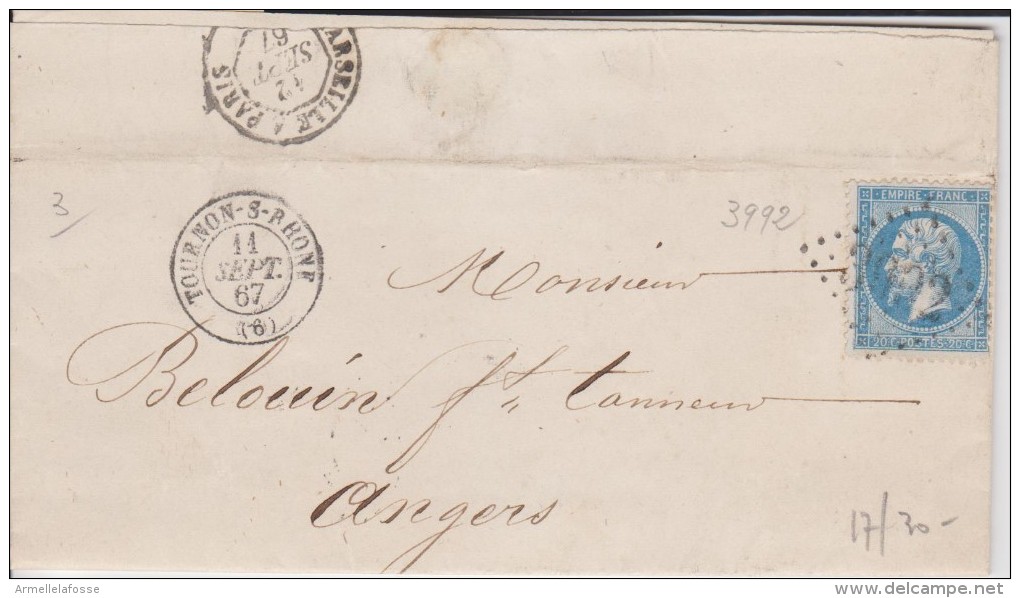 MARSEILLE A PARIS
12
SEPT
67
TOURNON-S-RHONE
11
SEPT.
67
(6)
3
3992
EMPIRE-FRANC
20C-POSTES-20C
Monsieur
Belouin ft. tanneur
Angers
17/30-
Armellelafosse
www.delcampe.net